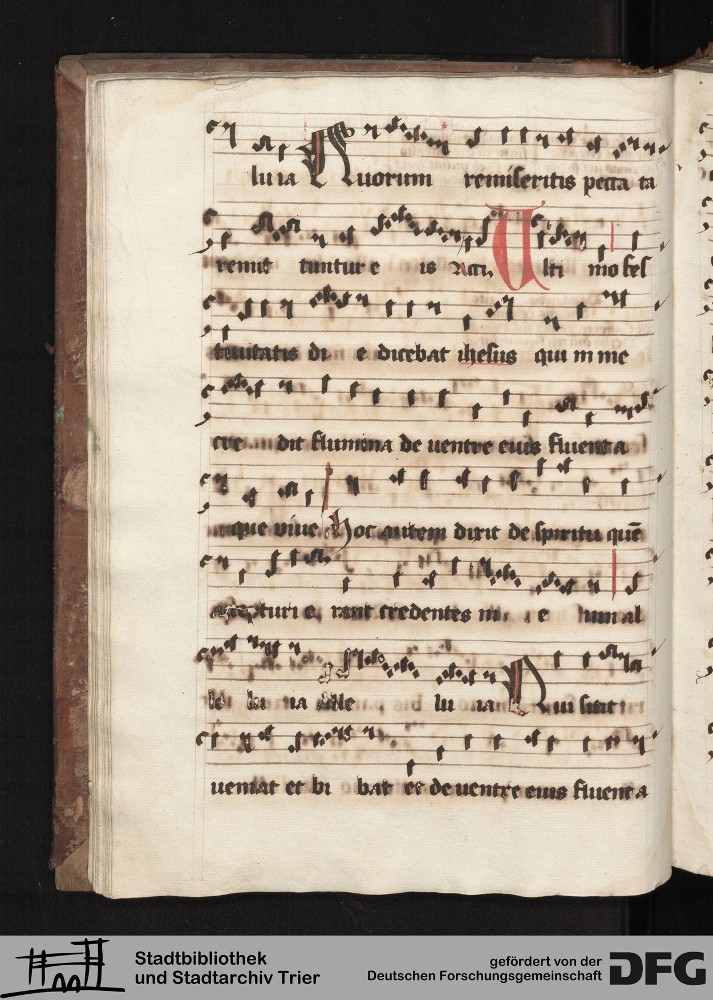 luia Quorum remiseritis pecca ta
remit tuntur e is Ulti mo fes
tiuitatis di e dicebat ihesus qui in me
cre dit flumina de uentre eius fluent a
que viue Hoc autem dixit de spiritu quē
accepturi e rant credentes in e um al
le lu ia alle lu ia Qui sitit
ueniat et bi bat et de uentre eius fluent a
Stadtbibliothek
und Stadtarchiv Trier
gefördert von der
Deutschen Forschungsgemeinschaft
DFG